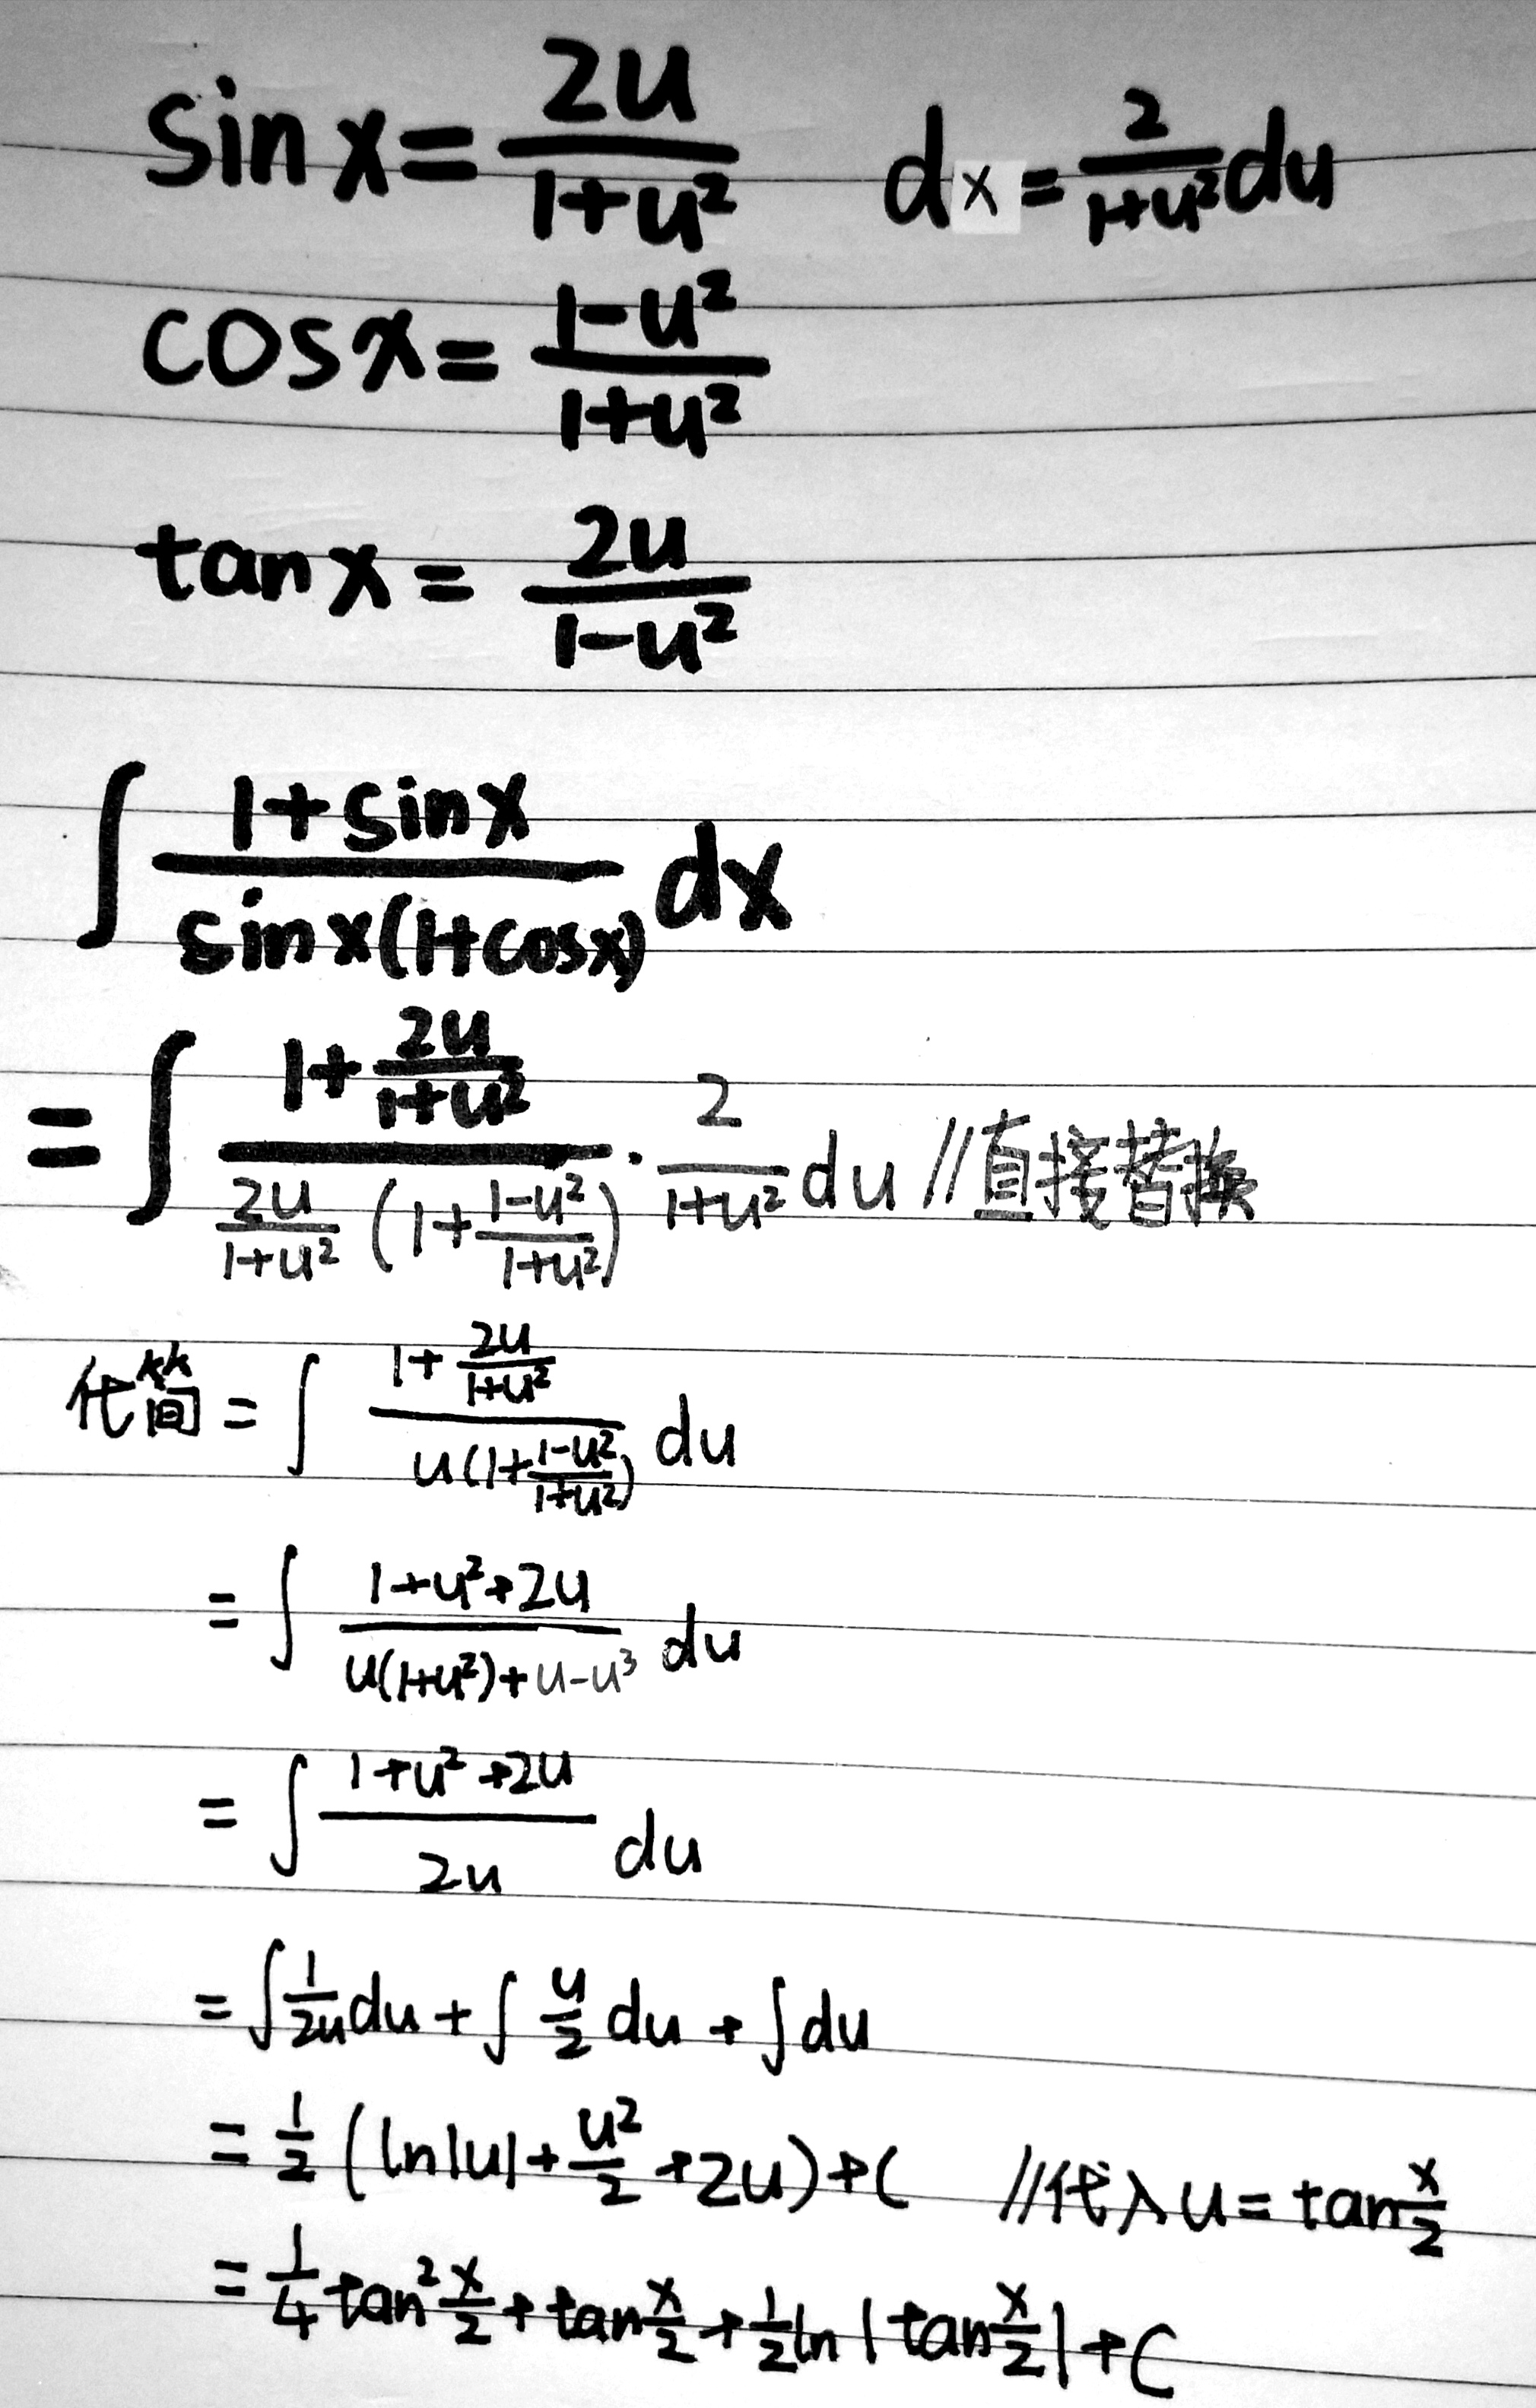 sin x = 2u/(1+u²)    dx = 2/(1+u²) du
cos x = (1-u²)/(1+u²)
tan x = 2u/(1-u²)
∫ (1+sin x)/(sin x(1+cos x)) dx
= ∫ (1+2u/(1+u²))/(2u/(1+u²) (1+(1-u²)/(1+u²))) · 2/(1+u²) du //直接替换
代简 = ∫ (1+2u/(1+u²))/(u(1+(1-u²)/(1+u²))) du
= ∫ (1+u²+2u)/(u(1+u²)+u-u³) du
= ∫ (1+u²+2u)/(2u) du
= ∫ 1/(2u) du + ∫ u/2 du + ∫ du
= 1/2 (ln|u| + u²/2 + 2u) + C    //代入 u = tan x/2
= 1/4 tan² x/2 + tan x/2 + 1/2 ln |tan x/2| + C